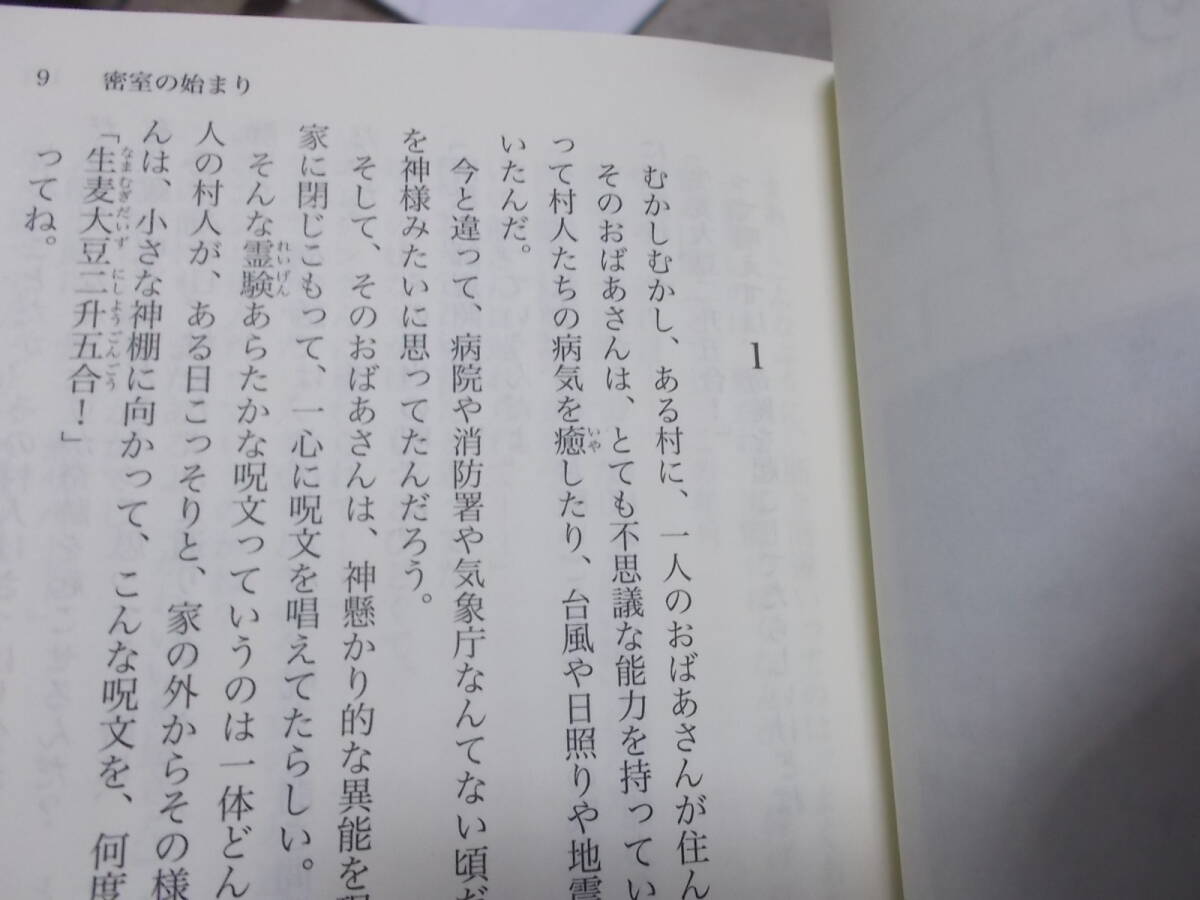 9 密室の始まり
1
むかしむかし、ある村に、一人のおばあさんが住ん
そのおばあさんは、とても不思議な能力を持ってい
って村人たちの病気を癒したり、台風や日照りや地震
いたんだ。
今と違って、病院や消防署や気象庁なんてない頃だ
を神様みたいに思ってたんだろう。
そして、そのおばあさんは、神懸かり的な異能を
家に閉じこもって、一心に呪文を唱えてたらしい。
そんな霊験あらたかな呪文っていうのは一体どん
人の村人が、ある日こっそりと、家の外からその様
んは、小さな神棚に向かって、こんな呪文を、何度
「生麦大豆二升五合！」
ってね。